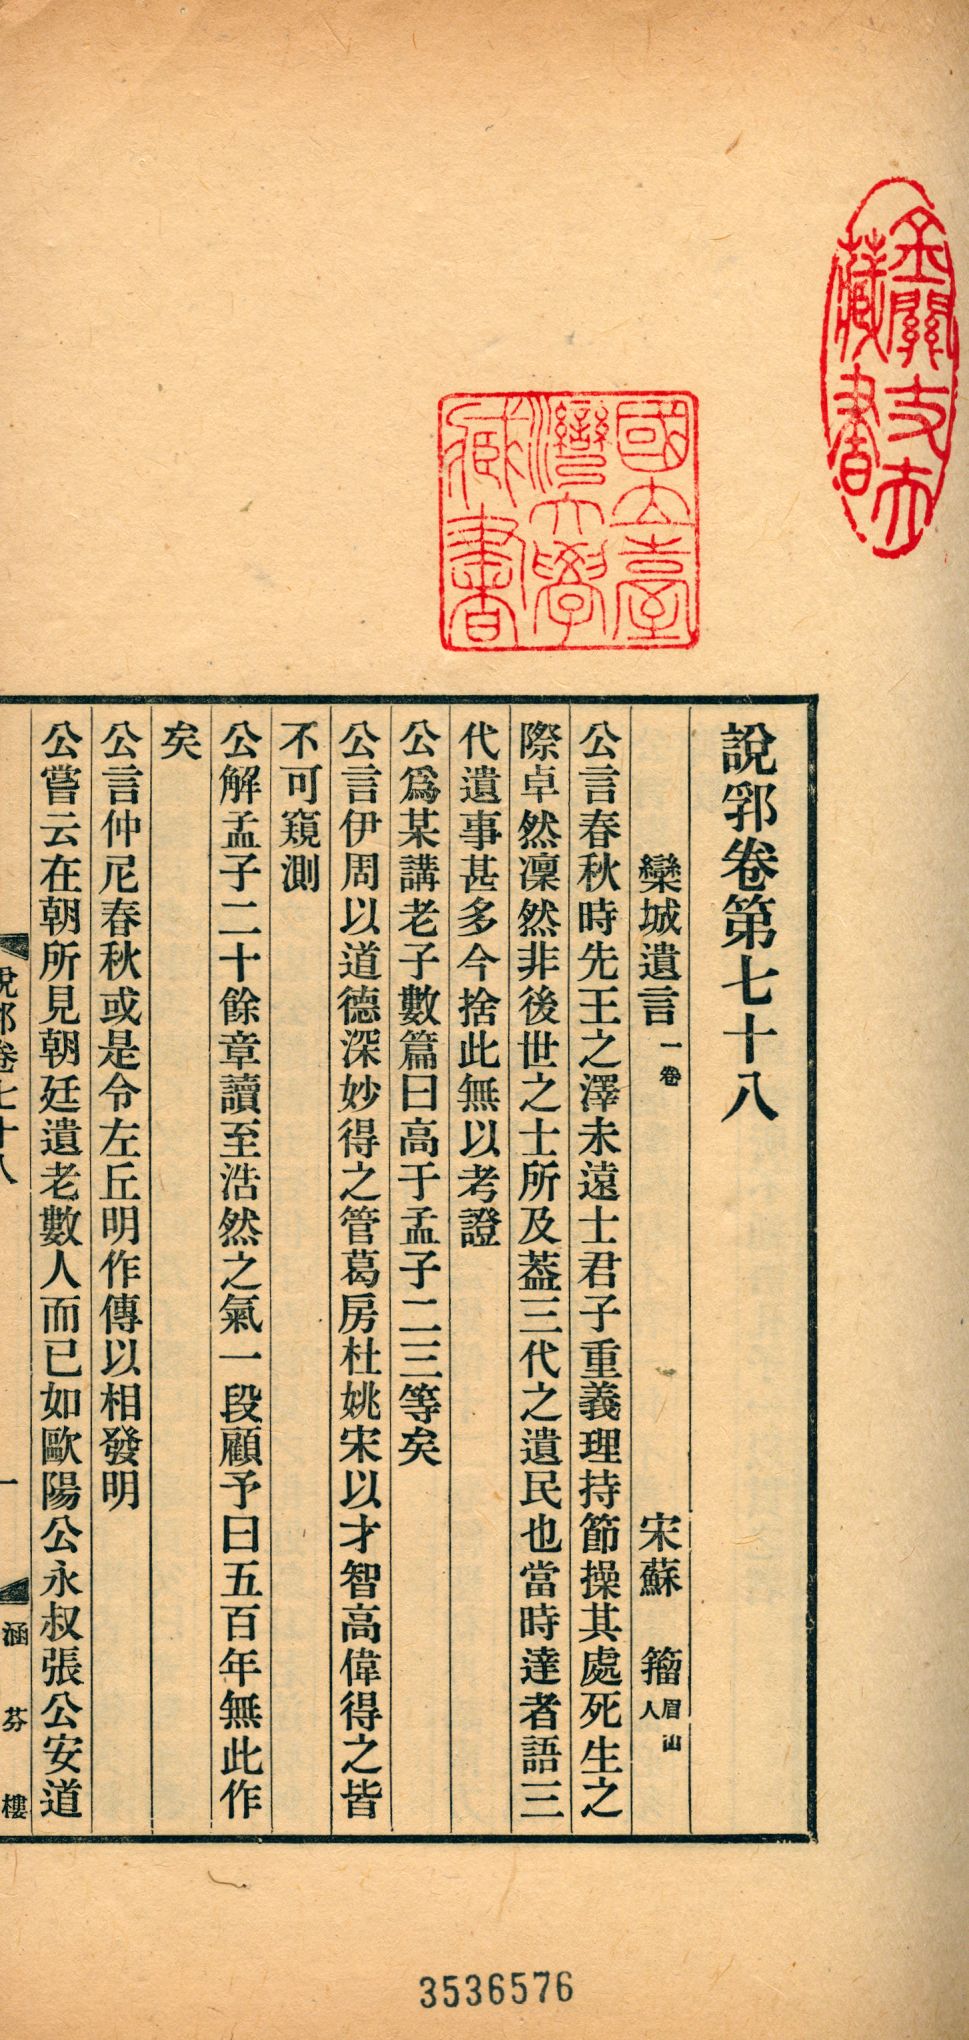 說郛卷第七十八
欒城遺言一卷 宋蘇 籀眉山人
公言春秋時先王之澤未遠士君子重義理持節操其處死生之
際卓然凜然非後世之士所及蓋三代之遺民也當時達者語三
代遺事甚多今捨此無以考證
公爲某講老子數篇曰高于孟子二三等矣
公言伊周以道德深妙得之管葛房杜姚宋以才智高偉得之皆
不可窺測
公解孟子二十餘章讀至浩然之氣一段顧予曰五百年無此作
矣
公言仲尼春秋或是令左丘明作傳以相發明
公嘗云在朝所見朝廷遺老數人而已如歐陽公永叔張公安道
說郛卷七十八 一 涵芬樓
國立臺灣大學藏書
藏書
3536576